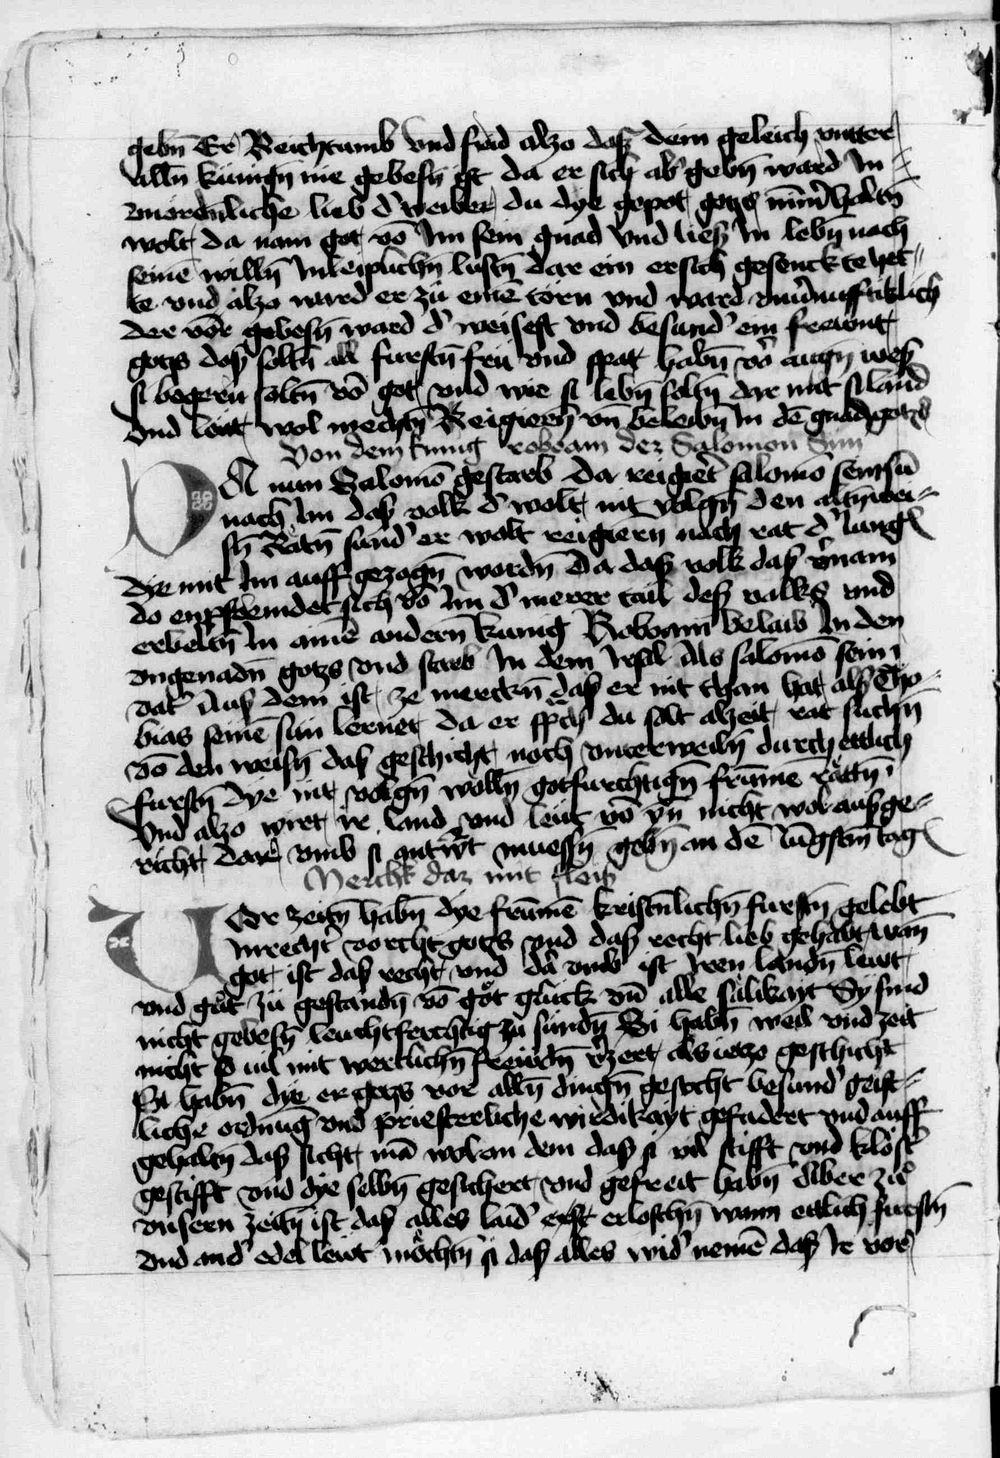 gebn̄ Er Reichtumb vnd frid alzo daß dem geleich vntter
alln̄ kunign̄ nie gebesn̄ ist da er sich ab' gebn̄ ward In
vnordn̄liche lieb d' weiber du dye gepot gotz nim̄ haltn̄
wolt da nam got vō Im sein gnad vnd ließ In lebn̄ nach
seinē willn̄ In leipl̄ichn̄ lustn̄ dar ein er sich gesenckte het
te vnd alzo ward er zu einē torn vnd ward vnu'nufftiklich
der vor gebesn̄ ward d' weisest vnd besund' ein frewnt
gotz doß soltn̄ all furstn̄ fru vnd spat habn̄ vor augn̄ weß
si begern soltn̄ vō got vnd wie si lebn̄ soltn̄ dar mit si land
vnd leut wol mechtn̄ Reigiern̄ vn̄ beleibn̄ In dē gnadn̄ gotz
Von dem kunig roboam dez Salomon Sun
DA nun Salomō gestarb da reigiert salomō sein sun
nach Im daß volk d' wolt nit volgn̄ den altn̄ wei
sn̄ Rätn̄ sund' er wolt reigiern nach rat d' Iungn̄
dye mit Im auff gezogn̄ wordn̄ Da daß volk daß v'nam
do enpfremdet sich vō Im d' merer tail deß valks vnd
erbeltn̄ In ainē andern̄ kunig Roboam belaib In den
vngenadn̄ gotz vnd starb In dem Als salomō sein
vat' Auß dem ist ze merckn̄ daß er nit than hat alß Tho
bias seinē sun lernet da er sp̄ch du solt alzeit rat suchn̄
vō den weisn̄ daß geschicht noch vnterweiln̄ durch ettlich
furstn̄ dye nit volgn̄ wolln̄ gotfurchtign̄ frumē rättn̄
Vnd alzo wirt ir land vnd leut vō In̄ nicht wol auß ge
richt dar vmb si antw̄rt muessn̄ gebn̄ an dē Iūgstn̄ tag
Merchk daz mit fleiß
Vor zeitn̄ habn̄ dye frumē kristn̄lichn̄ furstn̄ gelebt
In recht' vorcht gotz vnd daß recht lieb gehabt wan̄
got ist daß recht vnd da vmb ist Iren landn̄ leut
vnd gut zu gestandn̄ vō got gluck vn̄ alle salikait Sy sind
nicht gebesn̄ leuchtfertig zu sundn̄ Si habn̄ weil vnd zeit
nicht so uil mit wertlichn̄ frewdn̄ v'zert als ietzo geschicht
Si habn̄ dye er gotz vor alln̄ dingn̄ gesucht besund' geist
liche ordnūg vnd priesterliche wirdikayt gefudert vnd auff
gehaltn̄ daß sicht mā wol an dem daß si vil stifft vnd klöst'
gestifft vnd dye selbn̄ gesichert vnd gefreit habn̄ Aber zu
vnsern zeitn̄ ist daß alles laid' erloschn̄ wann ettlich furstn̄
vnd and' edel leut möchtn̄ si daß alles wid' nemē daß Ir vor